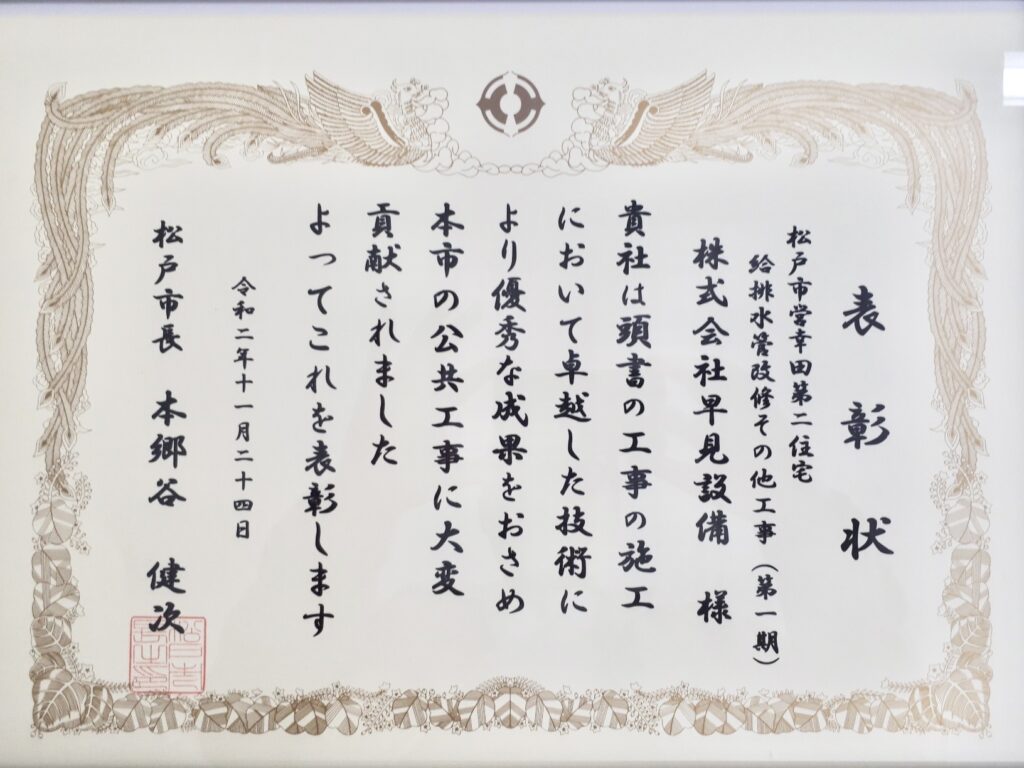 表彰状
松戸市営幸田第二住宅
給排水管改修その他工事（第一期）
株式会社早見設備 様
貴社は頭書の工事の施工
において卓越した技術に
より優秀な成果をおさめ
本市の公共工事に大変
貢献されました
よってこれを表彰します
令和二年十一月二十四日
松戸市長 本郷谷 健次